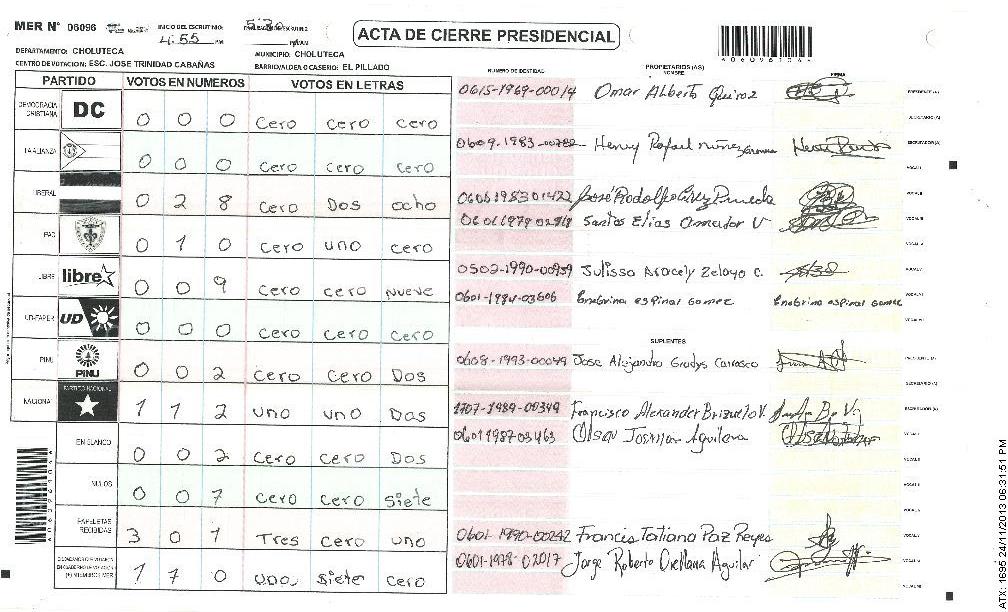 MER N° 06096
INICIO DEL ESCRUTINIO:
4:55 PM
5:30
ACTA DE CIERRE PRESIDENCIAL
DEPARTAMENTO: CHOLUTECA
MUNICIPIO: CHOLUTECA
CENTRO DE VOTACION: ESC. JOSE TRINIDAD CABAÑAS
BARRIO/ALDEA O CASERIO: EL PILLADO
PARTIDO VOTOS EN NUMEROS VOTOS EN LETRAS
DEMOCRACIA CRISTIANA DC 0 0 0 Cero Cero Cero
LA ALIANZA 0 0 0 Cero Cero Cero
LIBERAL 0 2 8 Cero Dos ocho
PAC 0 1 0 Cero uno cero
LIBRE libre 0 0 9 Cero cero Nueve
UD-FAPER UD 0 0 0 Cero Cero Cero
PINU PINU 0 0 2 Cero Cero Dos
NACIONAL PARTIDO NACIONAL 1 1 2 uno uno Dos
EN BLANCO 0 0 2 Cero Cero Dos
NULOS 0 0 7 Cero Cero Siete
PAPELETAS RECIBIDAS 3 0 1 Tres cero uno
1 7 0 uno Siete Cero
NUMERO DE IDENTIDAD PROPIETARIOS (AS) NOMBRE FIRMA
0615-1969-00014 Omar Alberto Quiroz PRESIDENTE (A)
SECRETARIO (A)
0609-1983-00782 Henry Rafael Nuñez ESCRUTADOR (A)
VOCAL I
0606198301422 José Rodolfo Pineda VOCAL II
Santos Elias Amador V VOCAL III
VOCAL IV
0502-1990-00959 Julissa Aracely Zelaya C. VOCAL V
0601-1984-03606 Enebrina espinal Gomez Enebrina espinal Gomez VOCAL VI
VOCAL VII
SUPLENTES
0608-1993-00049 Jose Alejandro Gradys Carrasco PRESIDENTE (A)
SECRETARIO (A)
1707-1989-00349 Francisco Alexander Brizuela V. ESCRUTADOR (A)
0601198703463 Aguilera VOCAL I
VOCAL II
VOCAL III
VOCAL IV
0601-1990-00242 Francis Tatiana Paz Reyes VOCAL V
0601-1978-02017 Jorge Roberto Orellana Aguilar VOCAL VI
VOCAL VII
ATX: 1695 24/11/2013 06:31:51 PM